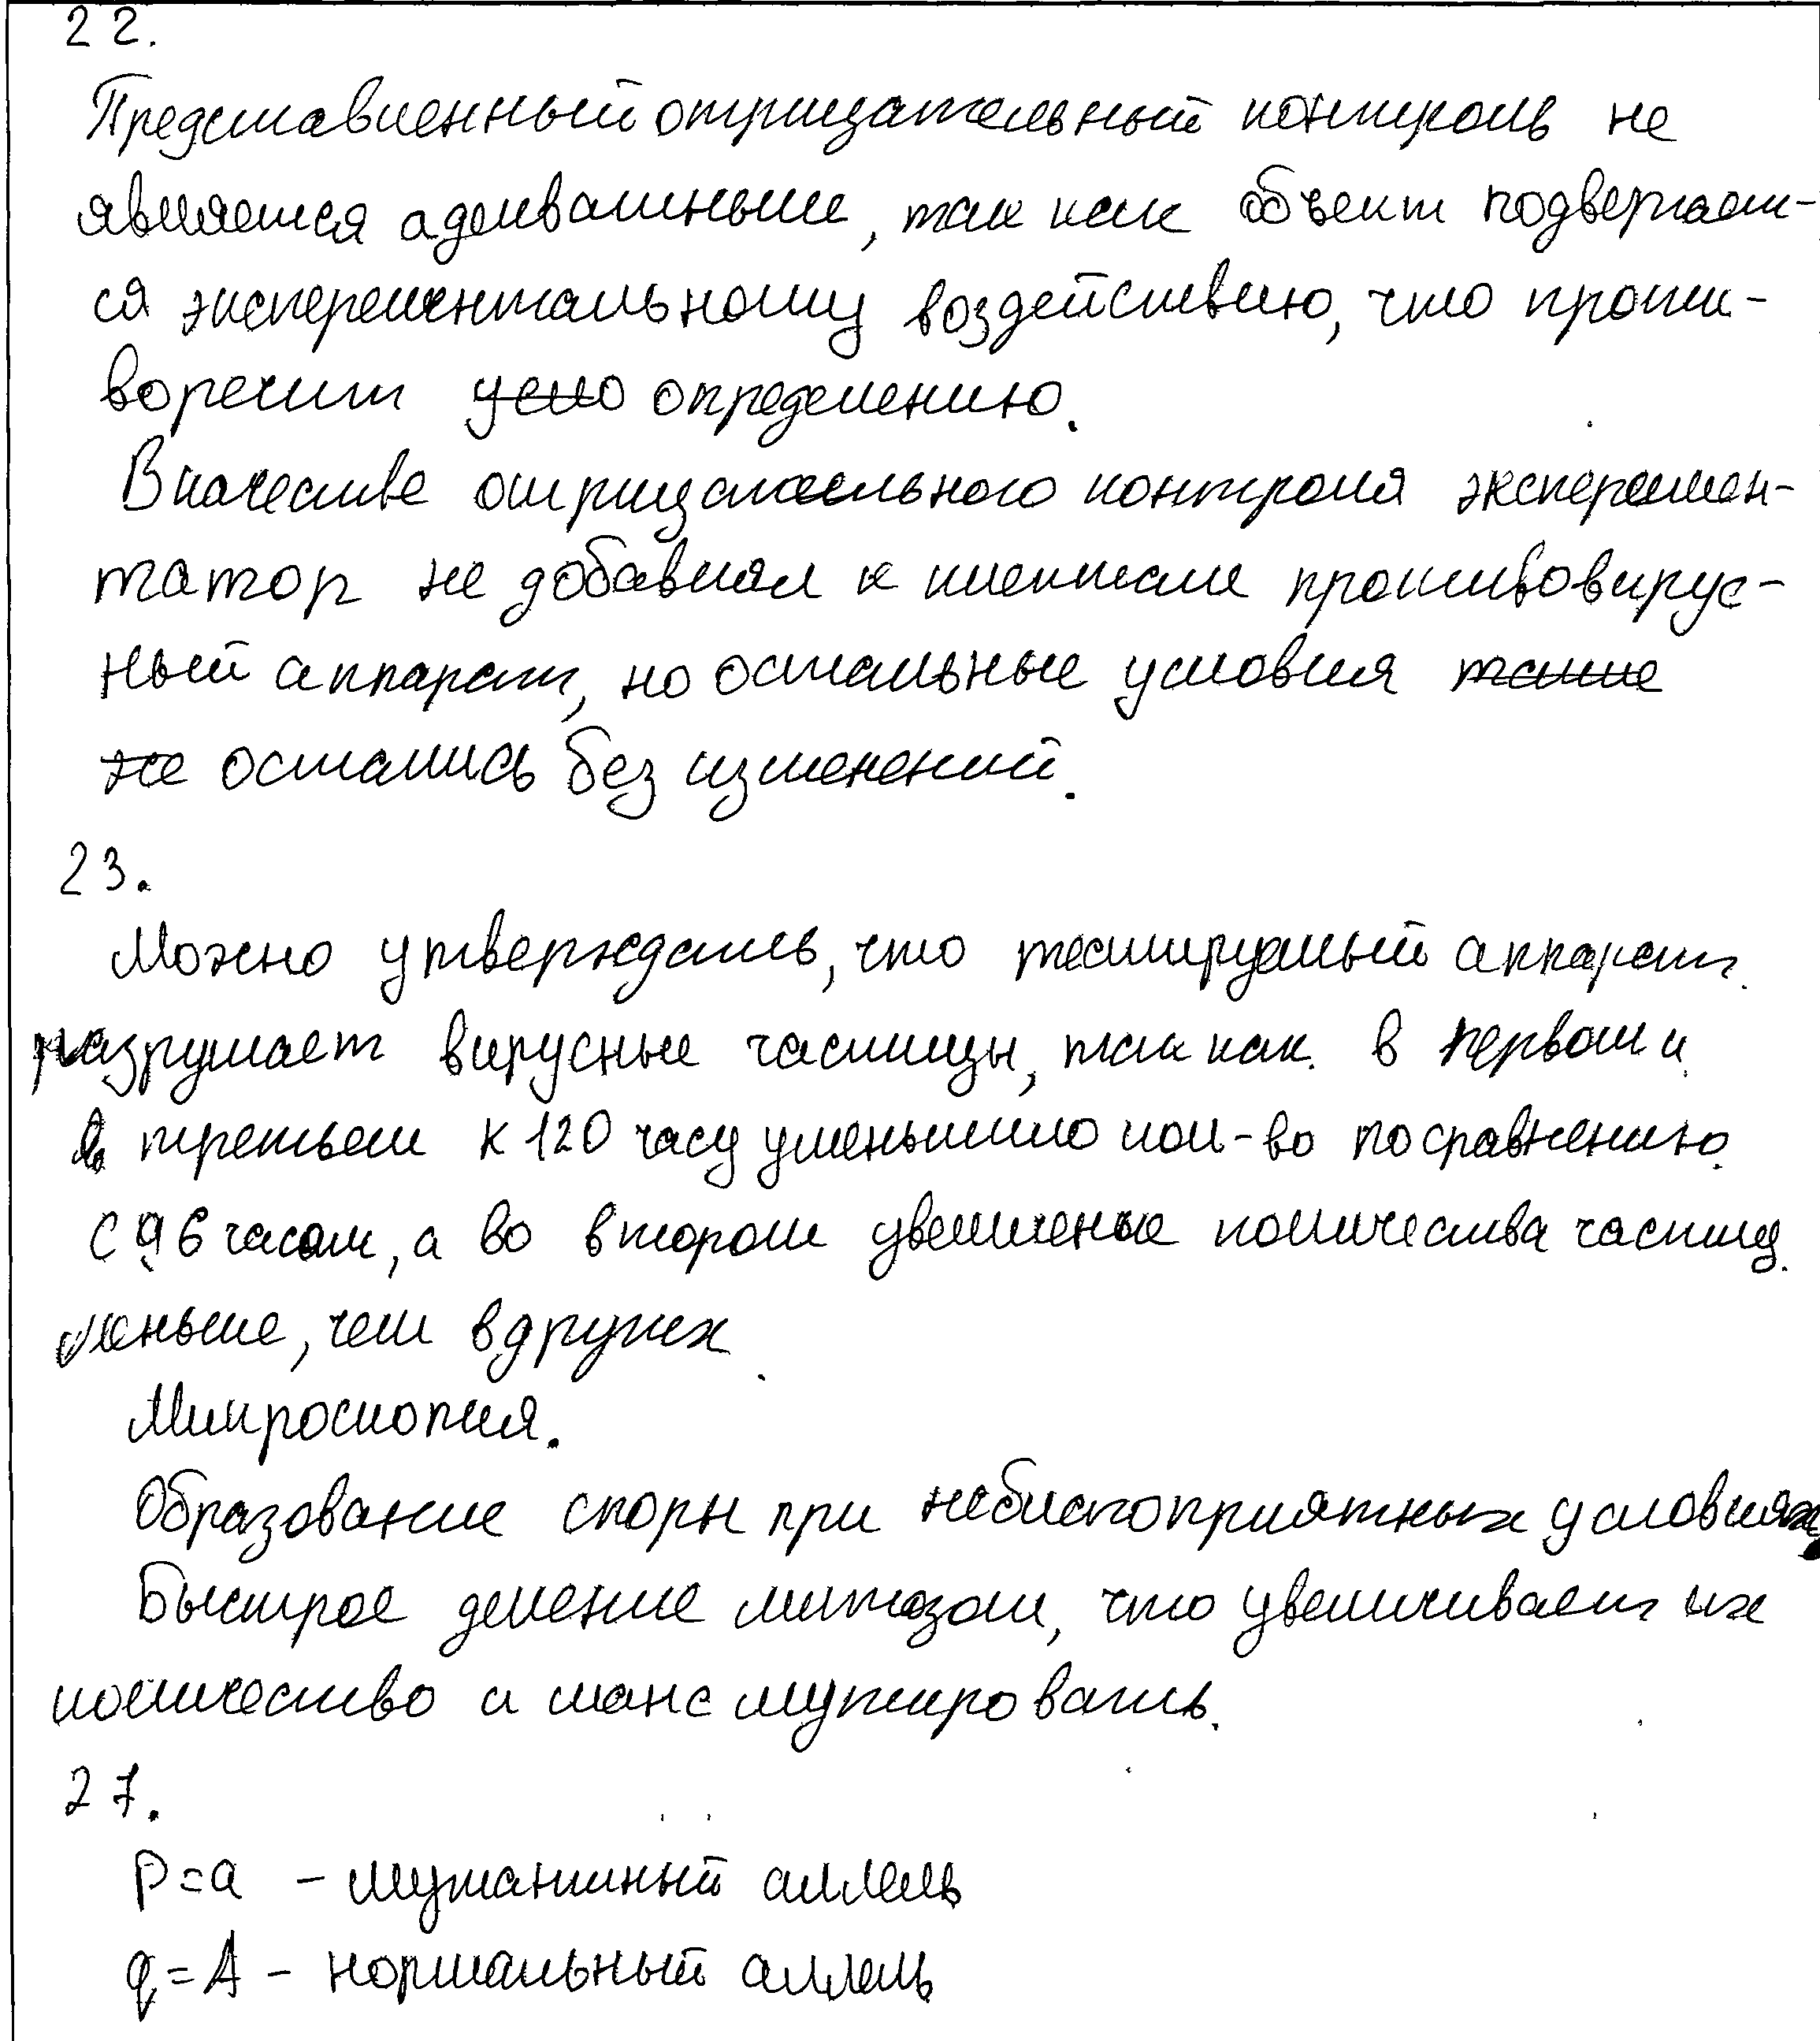 22.
Представленный отрицательный контроль не
является адекватным, так как объект подвергает-
ся эксперементальному воздействию, что проти-
воречит определению.
В качестве отрицательного контроля эксперемен-
татор не добавлял к клеткам противовирус-
ный аппарат, но остальные условия такие
же остались без изменений.
23.
Можно утверждать, что тестируемый аппарат
разрушает вирусные частицы, так как в первом и
в третьем к 120 часу уменьшило кол-во по сравнению
с 96 часом, а во втором увеличение количества частиц
меньше, чем в других.
Микроскопия.
Образование споры при неблагоприятных условиях,
Быстрое деление митозом, что увеличивает их
количество и шанс мутировать.
27.
P=a - мутантный аллель
q=A - нормальный аллель